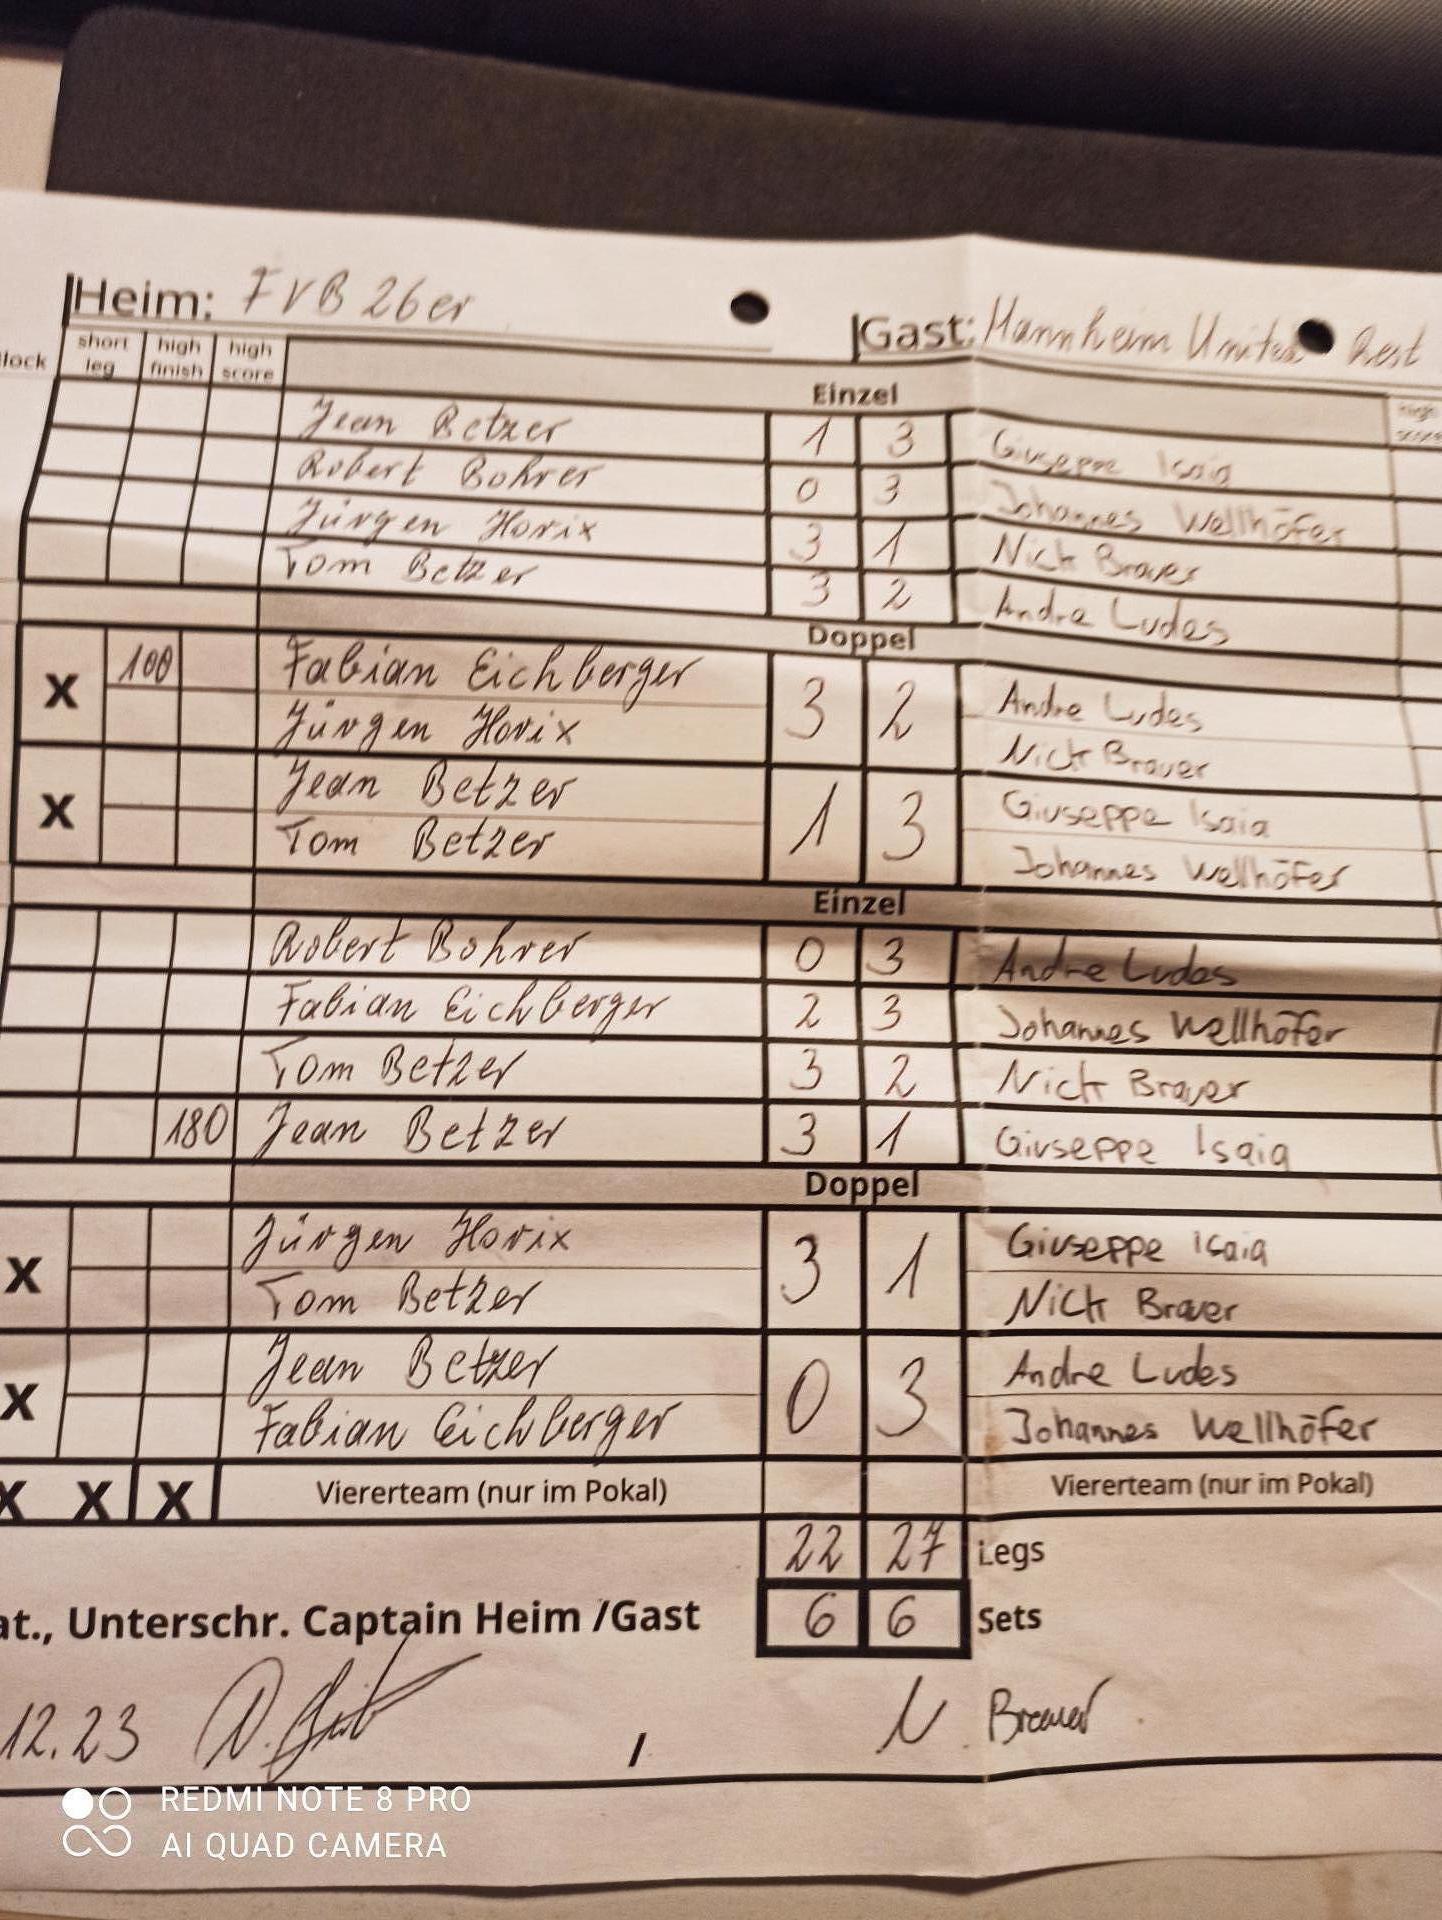 Heim: FVB 26er
Gast: Mannheim United Rest
lock short leg high finish high score
high score
Einzel
Jean Betzer 1 3 Giuseppe Isaia
Robert Bohrer 0 3 Johannes Wellhöfer
Jürgen Horix 3 1 Nick Brauer
Tom Betzer 3 2 Andre Ludes
Doppel
X 100 Fabian Eichberger 3 2 Andre Ludes
Jürgen Horix Nick Brauer
X Jean Betzer 1 3 Giuseppe Isaia
Tom Betzer Johannes Wellhöfer
Einzel
Robert Bohrer 0 3 Andre Ludes
Fabian Eichberger 2 3 Johannes Wellhöfer
Tom Betzer 3 2 Nick Brauer
180 Jean Betzer 3 1 Giuseppe Isaia
Doppel
X Jürgen Horix 3 1 Giuseppe Isaia
Tom Betzer Nick Brauer
X Jean Betzer 0 3 Andre Ludes
Fabian Eichberger Johannes Wellhöfer
X X X Viererteam (nur im Pokal) Viererteam (nur im Pokal)
22 27 Legs
at., Unterschr. Captain Heim /Gast 6 6 Sets
12.23 / N. Brauer
REDMI NOTE 8 PRO
AI QUAD CAMERA